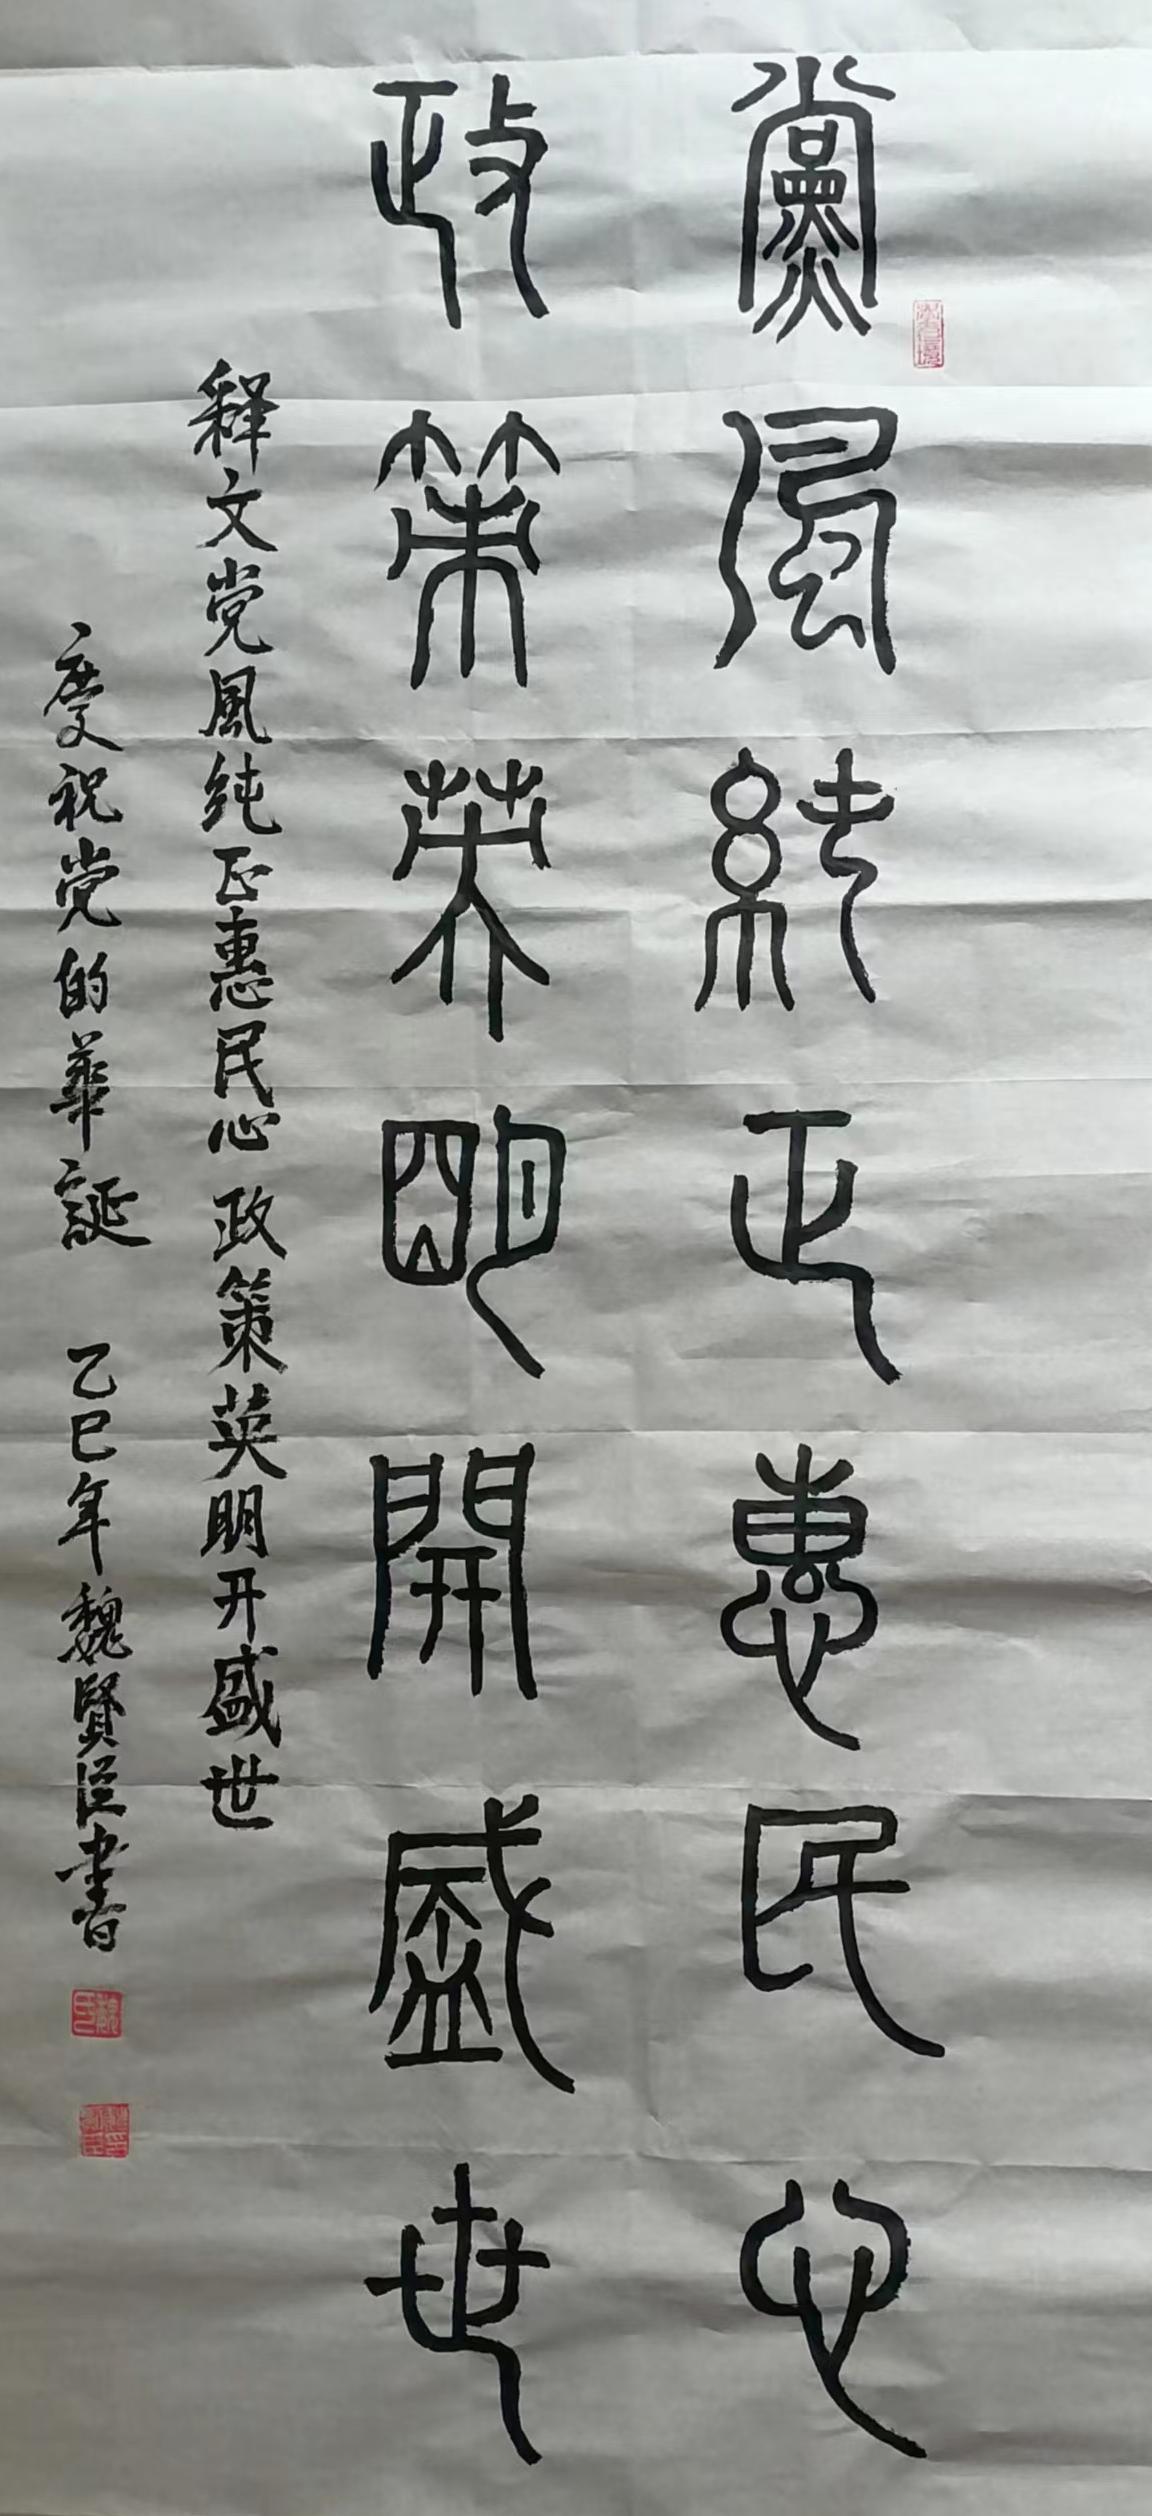 黨風純正惠民心
政策英明開盛世
释文党風纯正惠民心 政策英明开盛世
慶祝党的華誕 乙巳年魏賢臣書